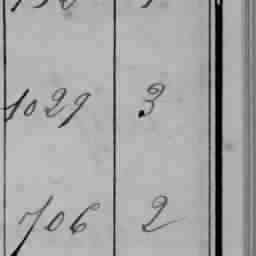 1029 3
706 2